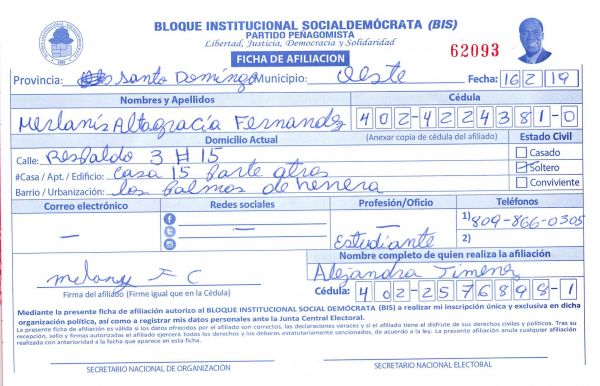 BLOQUE INSTITUCIONAL SOCIALDEMÓCRATA (BIS)
PARTIDO PEÑAGOMISTA
Libertad, Justicia, Democracia y Solidaridad
FICHA DE AFILIACION
62093
Provincia: Santo Domingo Municipio: Oeste Fecha: 16 2 19
Nombres y Apellidos Cédula
Merlanis Altagracia Fernandez 402-4224381-0
Domicilio Actual (Anexar copia de cédula del afiliado) Estado Civil
Calle: Respaldo 3 # 15 Casado
#Casa / Apt. / Edificio: Casa 15 Parte atras Soltero
Barrio / Urbanización: los Palmos de herrera Conviviente
Correo electrónico Redes sociales Profesión/Oficio Teléfonos
— — Estudiante 1) 809-866-0305
2)
Nombre completo de quien realiza la afiliación
melany F C Alejandra Jimenez
Firma del afiliado (Firme igual que en la Cédula) Cédula: 402-2576898-1
Mediante la presente ficha de afiliación autorizo al BLOQUE INSTITUCIONAL SOCIAL DEMÓCRATA (BIS) a realizar mi inscripción única y exclusiva en dicha
organización política, así como a registrar mis datos personales ante la Junta Central Electoral.
La presente ficha de afiliación es válida si los datos ofrecidos por el afiliado son correctos, las declaraciones veraces y si el afiliado tiene el disfrute de sus derechos civiles y políticos. Tras su
recepción, sello y firmas autorizadas el afiliado ejercerá todos los derechos y los deberes estatutariamente sancionados, de acuerdo a la ley. La presente afiliación anula cualquier afiliación
realizada con anterioridad a la fecha que aparece en esta ficha.
SECRETARIO NACIONAL DE ORGANIZACIÓN SECRETARIO NACIONAL ELECTORAL